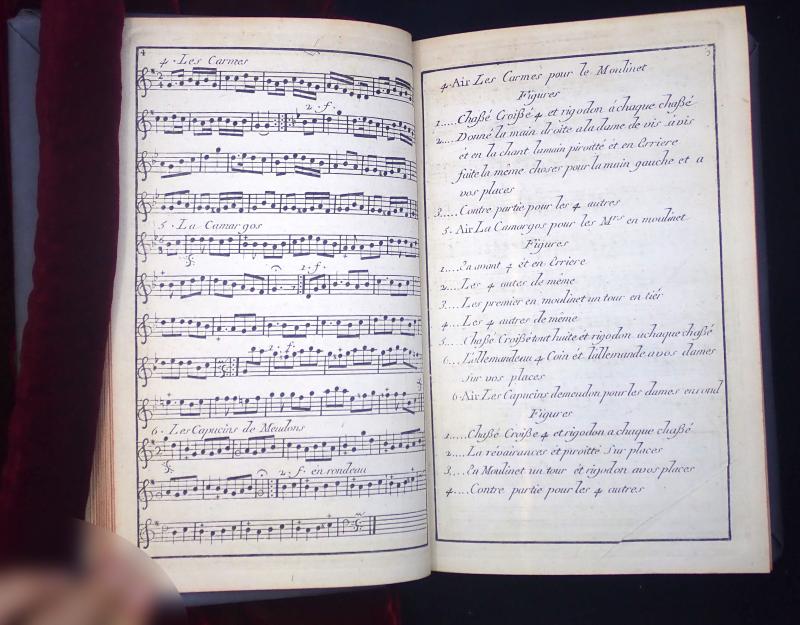 4
4. Les Carmes
2. f.
5. La Camargos
2. f.
2. f.
6. Les Capucins de Meudons
2. f. en rondeau
5
4. Air Les Carmes pour le Moulinet
Figures
1.... Chaßé Croißé 4 et rigodon a chaque chaßé
2.... Donné la main droite a la dame de vis . à vis
et en la chant la main piroitté et en Erriere
faite la même choses pour la main gauche et a
vos places
3.... Contre partie pour les 4 autres
5. Air La Camargos pour les Mrs en moulinet
Figures
1.... En avant 4 et en Erriere
2.... Les 4 autes de même
3.... Les premier en moulinet un tour en tiér
4.... Les 4 autres de même
5.... Chaße Croißé tout huite et rigodon a chaque chaßé
6.... L'allemande au 4 Coin et l'allemande a vos dames
Sur vos places
6. Air Les Capucins de meudon pour les dames en rond
Figures
1.... Chaßé Croiße 4 et rigodon a chaque chaßé
2.... La révairances et piroitté Sur places
3.... En Moulinet un tour et rigodon a vos places
4.... Contre partie pour les 4 autres